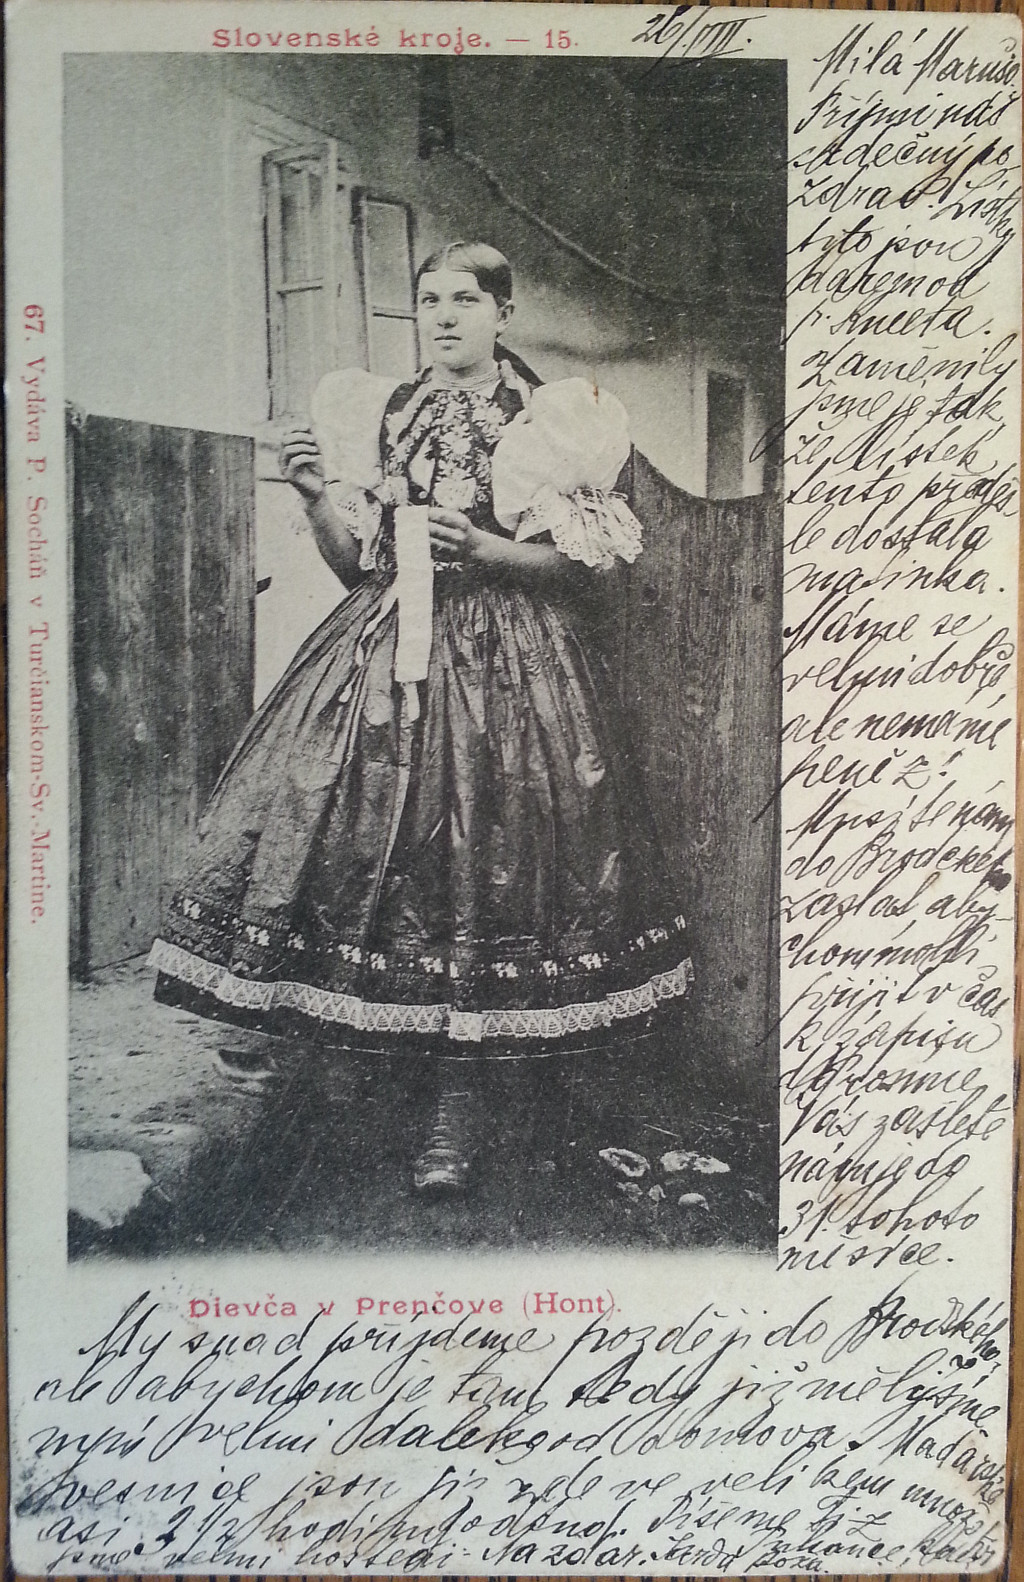 Slovenské kroje. — 15.
26/VIII.
67. Vydáva P. Socháň v Turčianskom-Sv.-Martine.
Milá Marušo.
Přijmi náš
srdečný po
zdrav. Lístky
tyto jsou
darem od
p. Kmeťa.
Zaměnily
jsme je, tak
že lístek
tento
dostala
maminka.
Máme se
velmi dobře,
ale nemáme
peněz!
nám
do
zaslat, aby-
chom mohli
přijít v čas
k zápisu
Prosíme
Vás zašlete
nám je do
31. tohoto
měsíce.
Dievča v Prenčove (Hont).
My snad přijdeme později do
ale abychom je tam tedy již měly. Jsme
nyní velmi daleko od domova. Maďarské
vesnice jsou již zde ve velikém množst
asi 2 1/2 hodiny odtud. Píšeme Ti z
jsme velmi Na zdar.